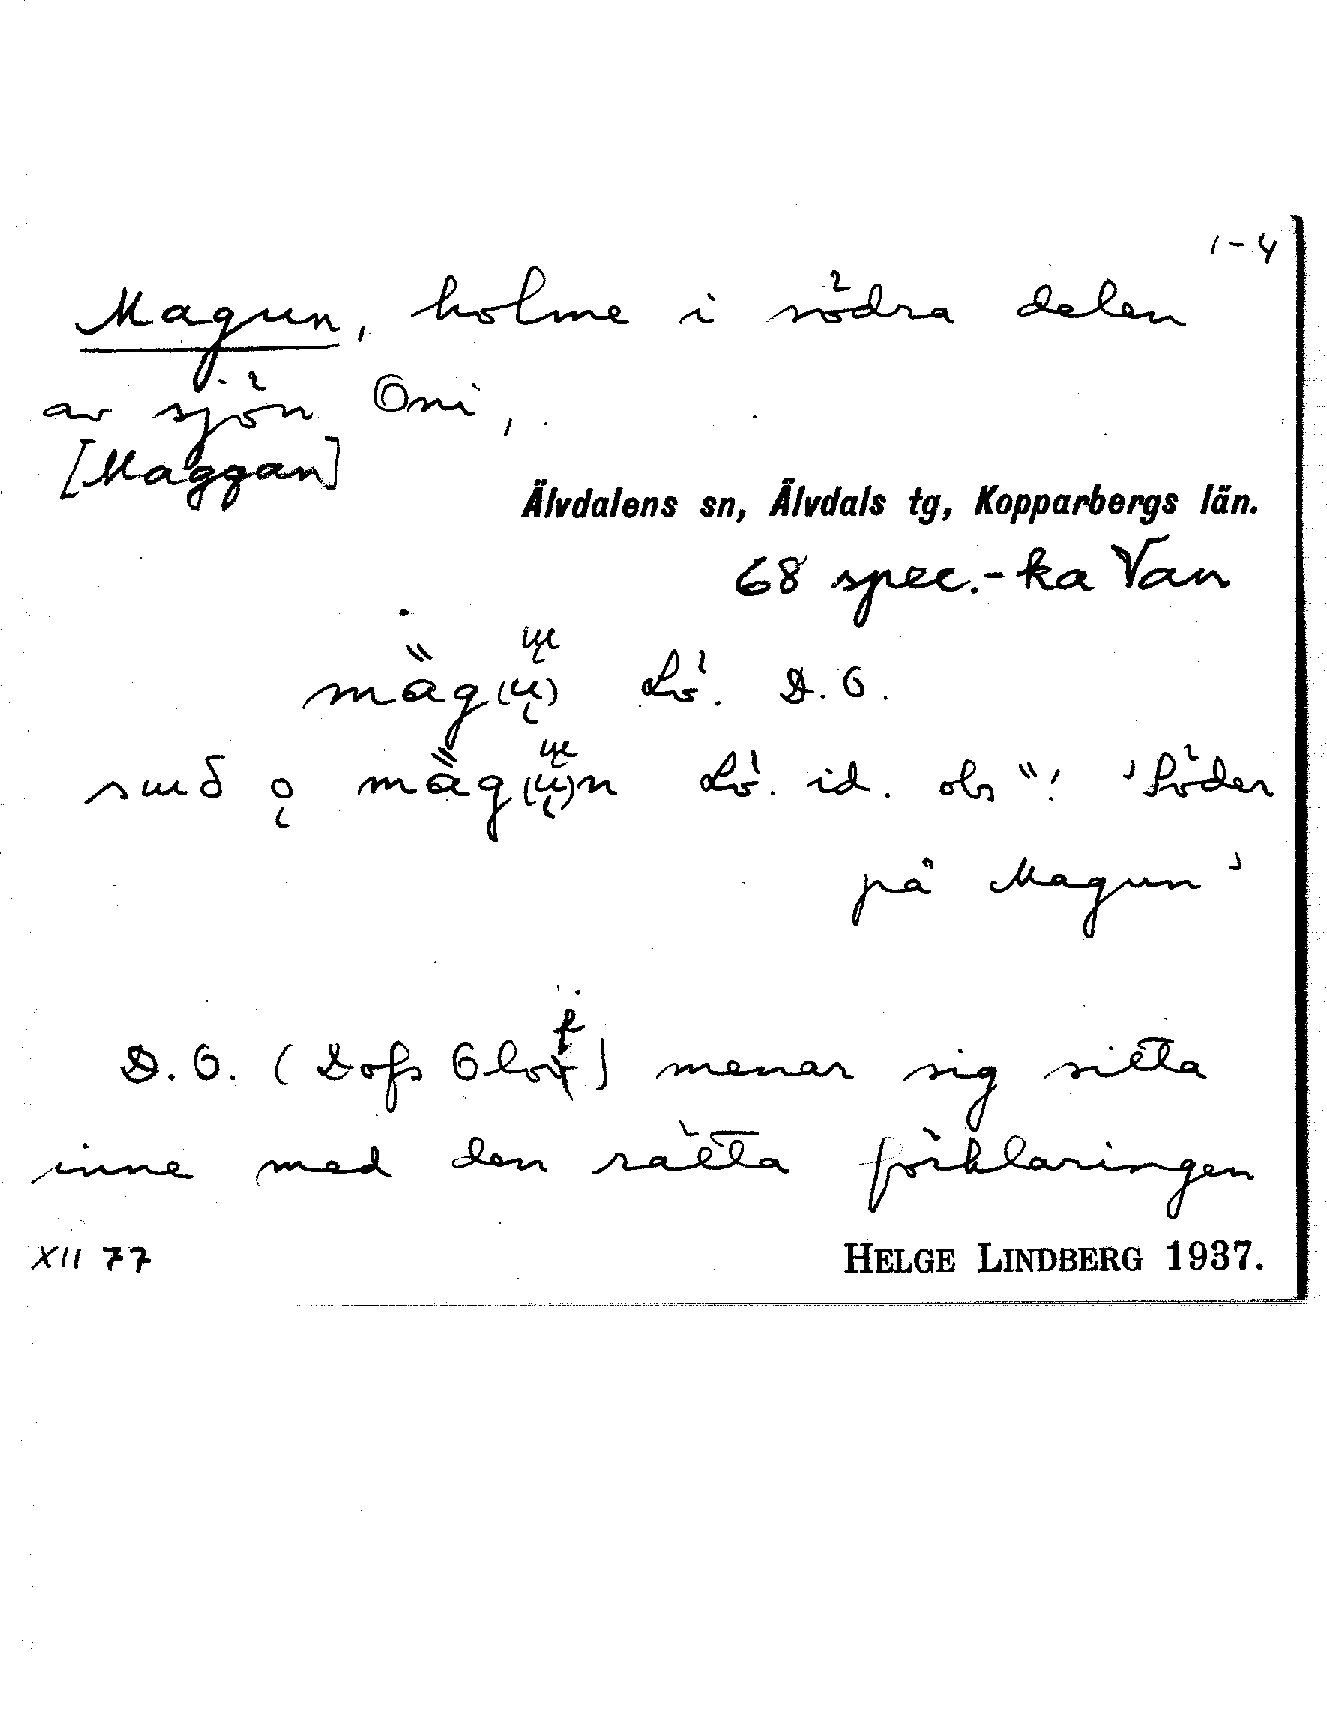 1-4
Magun, holme i södra delen
av sjön Oni,
[Maggan]
Älvdalens sn, Älvdals tg, Kopparbergs län.
68 spec.-ka Van
Lö. D.O.
Lö. id. obs "! 'Söder
på Magun'
D.O. (Dofs Olof) menar sig sitta
inne med den rätta förklaringen
XII 77
HELGE LINDBERG 1937.